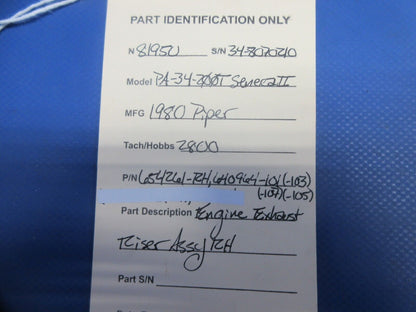 PART IDENTIFICATION ONLY
N 8195U S/N 34-8070210
Model PA-34-200T Seneca II
MFG 1980 Piper
Tach/Hobbs 2800
P/N 654261-RH, 640964-101(-103)
(-107)(-105)
Part Description Engine Exhaust
Riser Assy RH
Part S/N